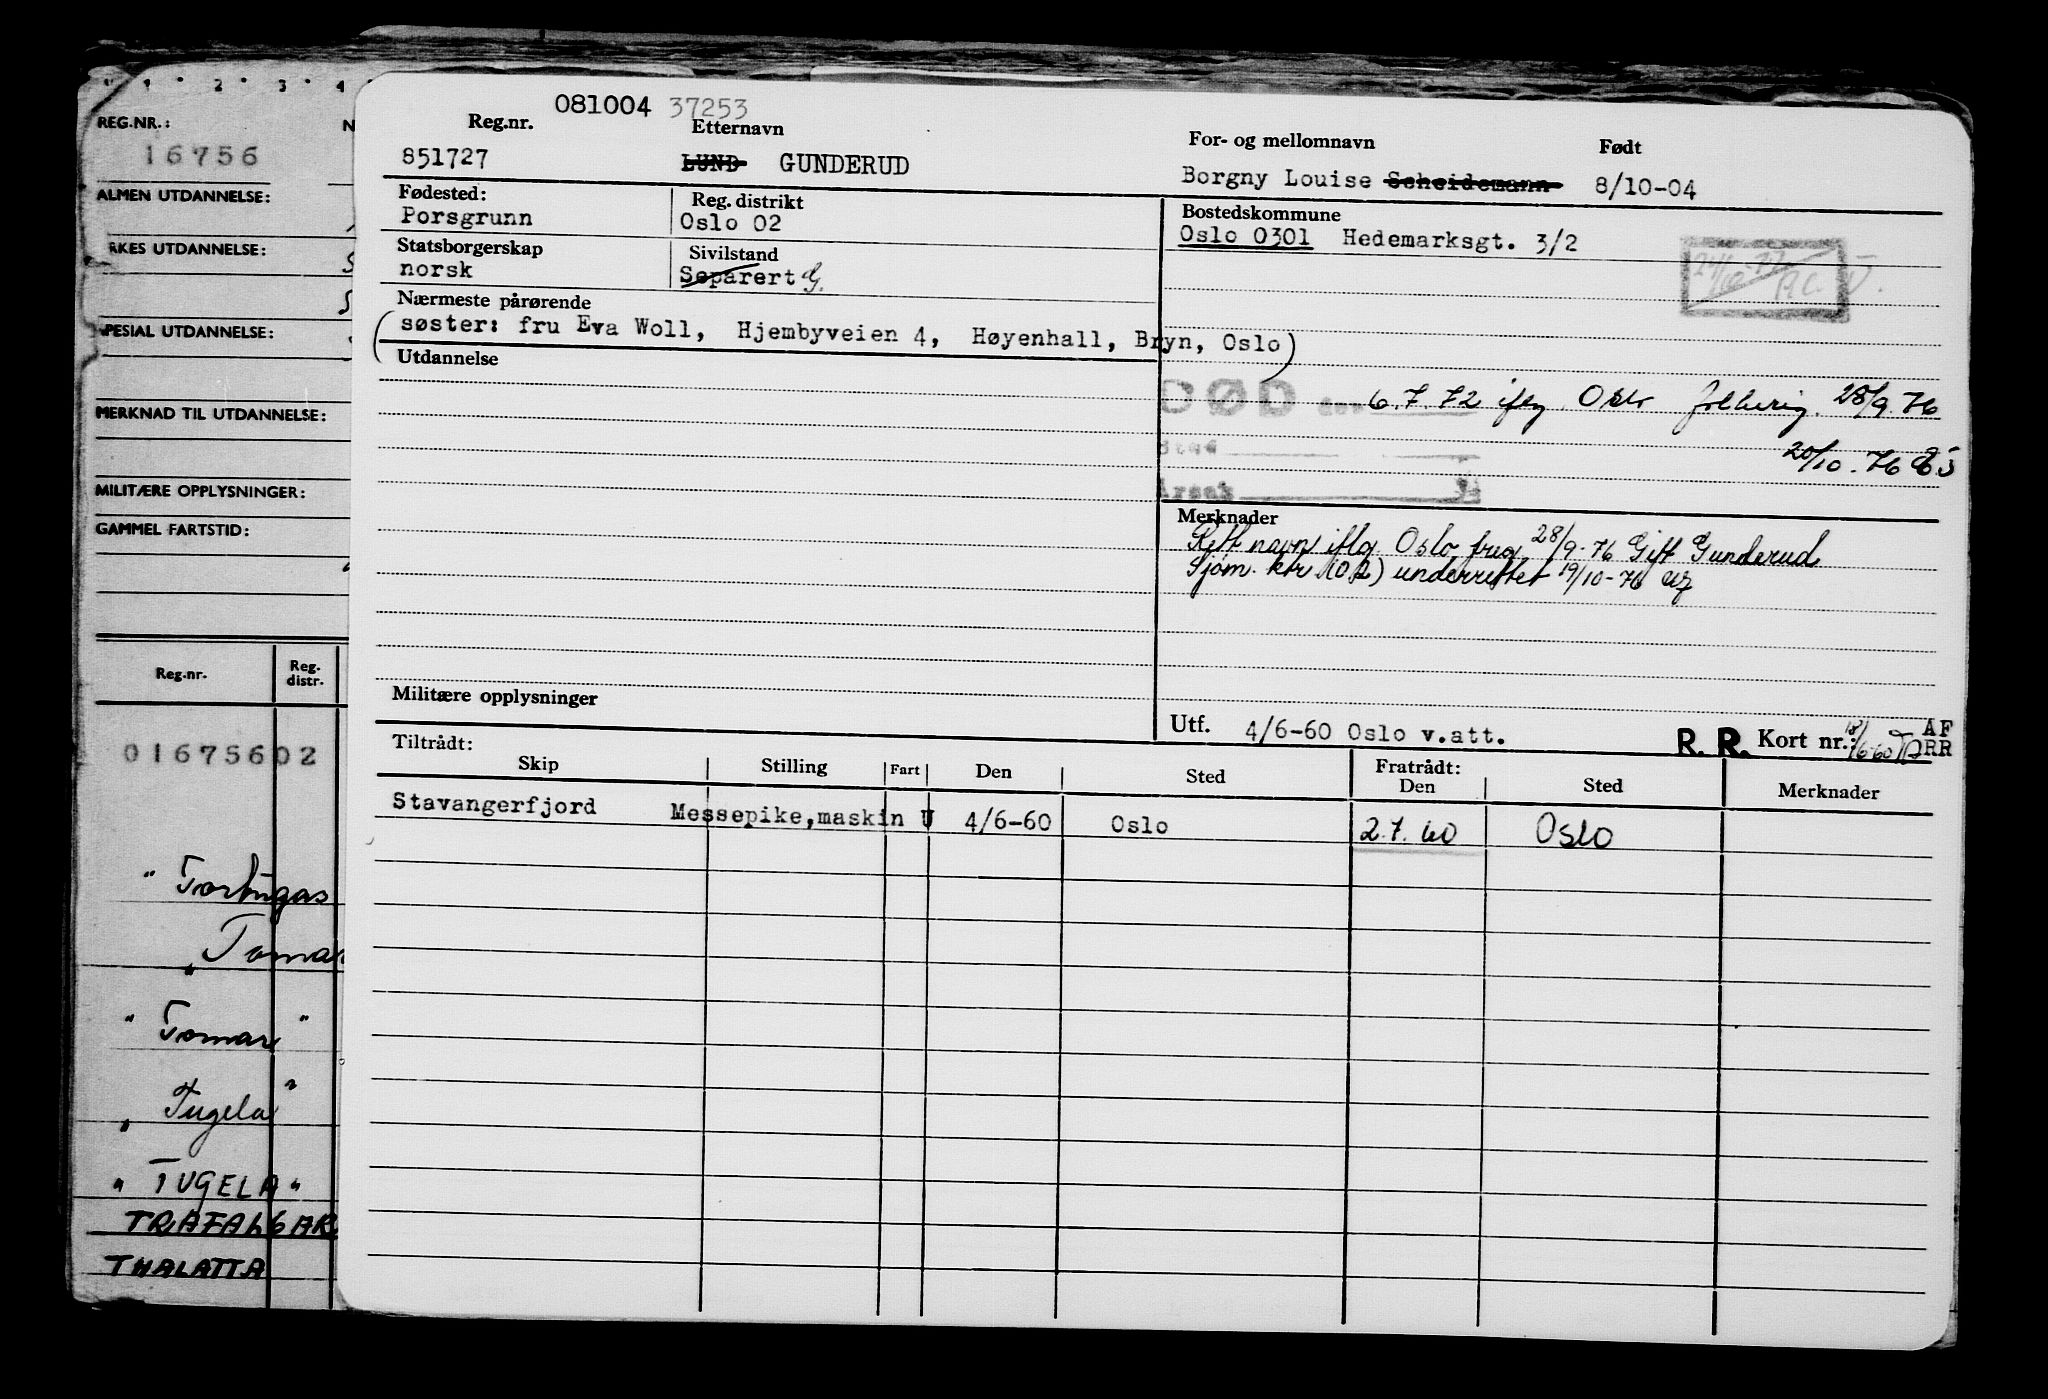 1 2 3 4
REG.NR.:
16756
ALMEN UTDANNELSE:
RKES UTDANNELSE:
PESIAL UTDANNELSE:
MERKNAD TIL UTDANNELSE:
MILITÆRE OPPLYSNINGER:
GAMMEL FARTSTID:
Reg.nr. Reg. distr.
01675602
" Tortugas
" Tomar
" Tomar "
" Tugela "
" TUGELA "
TRAFALGAR
THALATTA
081004 37253
Reg.nr. Etternavn For- og mellomnavn Født
851727 LUND GUNDERUD Borgny Louise Scheidemann 8/10-04
Fødested: Reg. distrikt Bostedskommune
Porsgrunn Oslo 02 Oslo 0301 Hedemarksgt. 3/2
Statsborgerskap Sivilstand
norsk Separert G.
Nærmeste pårørende
(søster: fru Eva Woll, Hjembyveien 4, Høyenhall, Bryn, Oslo)
Utdannelse
DØD den 6.7.72 iflg Oslo 28/9.76
Sted 20/10-76
Årsak
Merknader
Rett navn iflg. Oslo freg. 28/9-76 Gift Gunderud
Sjøm. ktr (02) underrettet 19/10-76
Militære opplysninger
Utf. 4/6-60 Oslo v.att. R. R. Kort nr.: 18/6-60 AF RR
Tiltrådt: Fratrådt:
Skip Stilling Fart Den Sted Den Sted Merknader
Stavangerfjord Messepike,maskin U 4/6-60 Oslo 2.7.60 Oslo